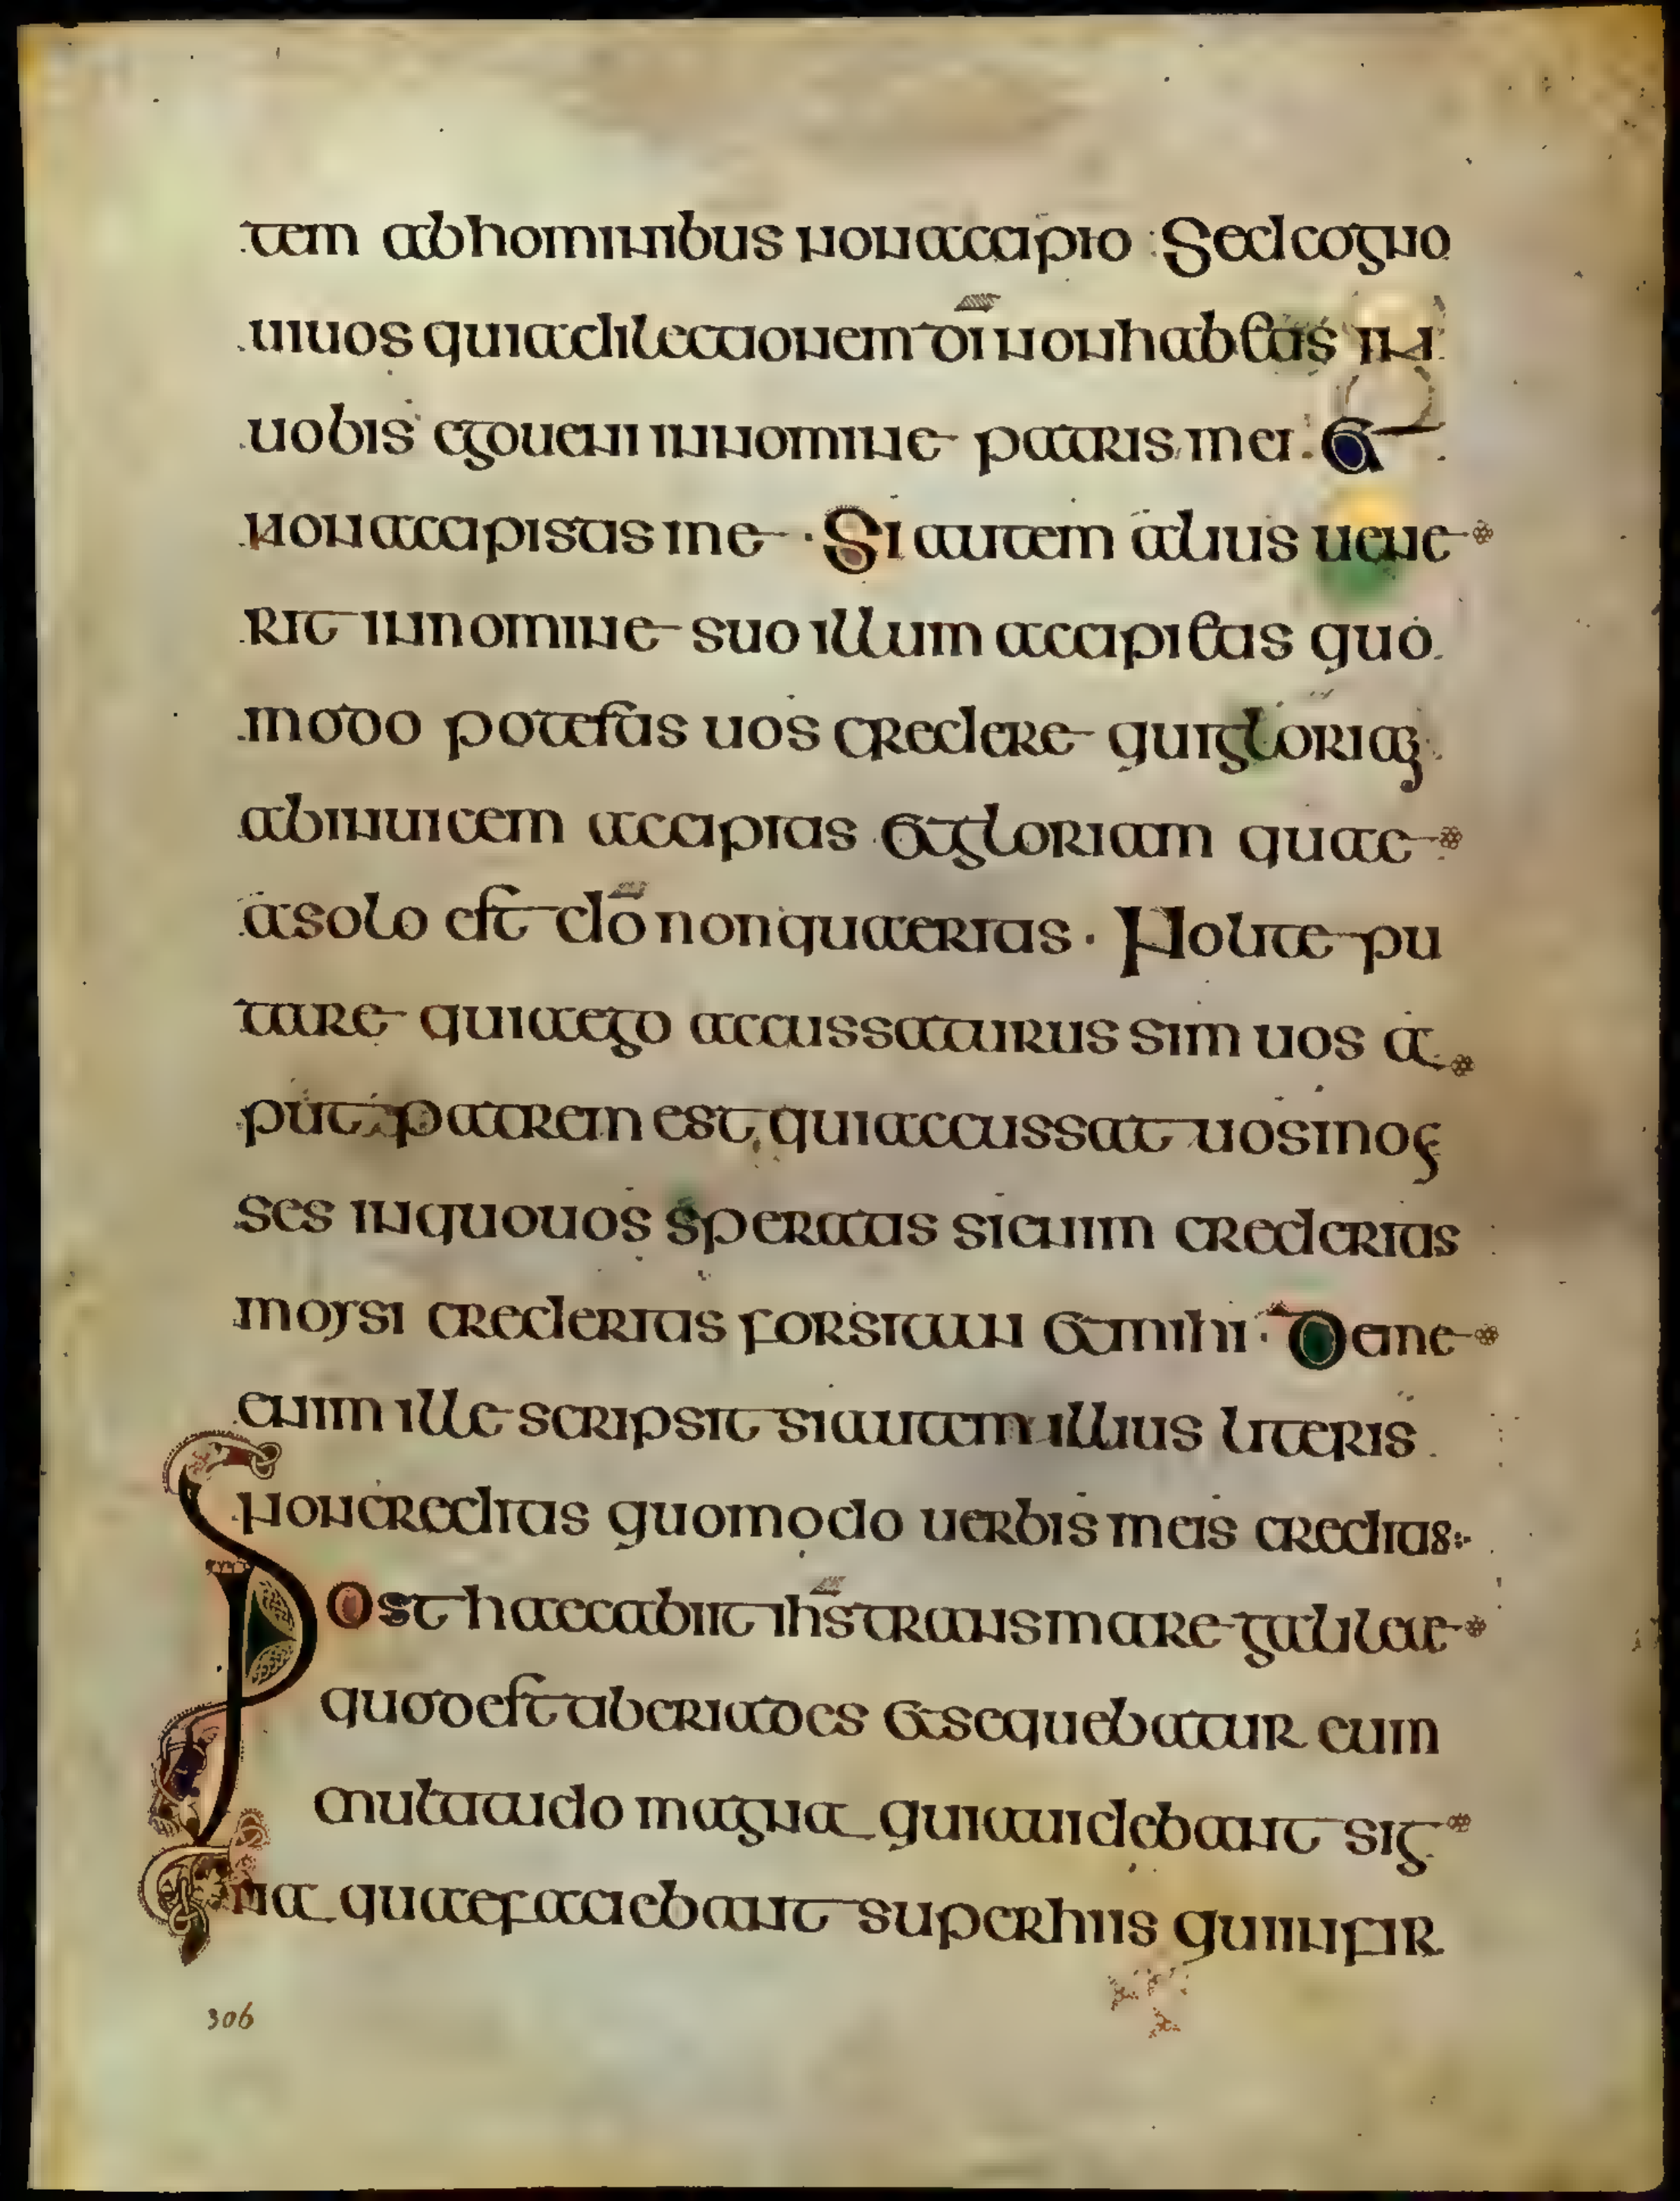 tem abhominibus nonaccipio Sedcogno
uiuos quiadilectionem dī nonhabetis in
uobis egoueni innomine patris mei Et
nonaccipistis me · Si autem alius uene
rit innomine suo illum accipietis quo
modo potestis uos credere quigloriam
abinuicem accipitis etgloriam quae
asolo est dō nonquaeritis · Nolite pu
tare quiaego accussaturus sim uos a
put patrem est quiaccussat uosmo
ses inquouos speratis sienim crederitis
moysi crederitis forsitan etmihi · Deme
enim ille scripsit siautem illius literis
noncreditis quomodo uerbis meis creditis:·
Post haecabiit ihs̄ transmare galilae
quodest tiberiades etsequebatur eum
multitudo magna quiauidebant sig
na quaefaciebant superhiis quiinfir
306